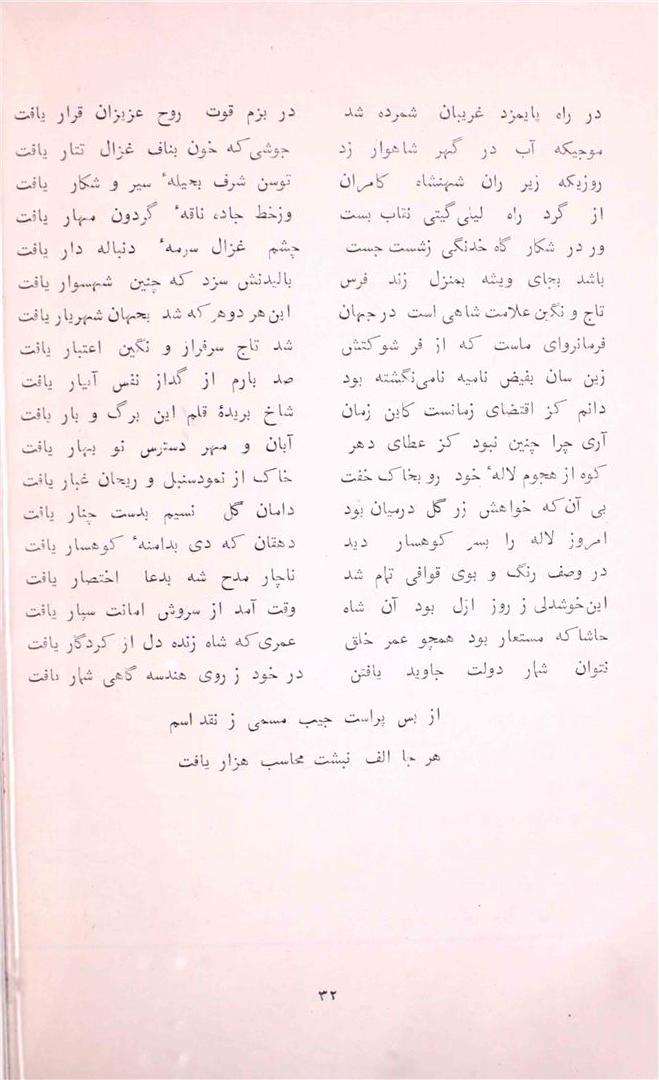 در راه پایمزد غریبان شمرده شد در بزم قوت روح عزیزان قرار یافت
موجیکه آب در گهر شاهوار زد جوشی که خون بناف غزال تتار یافت
روزیکه زیر ران شهنشاه کامران توسن شرف بحیلهٔ سیر و شکار یافت
از گرد راه لیلی گیتی نقاب بست وزخط جاده ناقهٔ گردون مهار یافت
ور در شکار گاه خدنگی زشست جست چشم غزال سرمهٔ دنباله دار یافت
باشد بجای ویشه بمنزل زند فرس بالیدنش سزد که چنین شهسوار یافت
تاج و نگین علامت شاهی است در جهان این هر دو هر که شد بجهان شهریار یافت
فرمانروای ماست که از فر شوکتش شد تاج سرفراز و نگین اعتبار یافت
زین سان بفیض نامیه نامی نگشته بود صد بارم از گداز نفس آبیار یافت
دانم کز اقتضای زمانست کاین زمان شاخ بریدهٔ قلم این برگ و بار یافت
آری چرا چنین نبود کز عطای دهر آبان و مهر دسترس نو بهار یافت
کوه از هجوم لالهٔ خود رو بخاک خفت خاک از نمود سنبل و ریحان غبار یافت
بی آن که خواهش زر گل درمیان بود دامان گل نسیم بدست چنار یافت
امروز لاله را بسر کوهسار دید دهقان که دی بدامنهٔ کوهسار یافت
در وصف رنگ و بوی قوافی تمام شد ناچار مدح شه بدعا اختصار یافت
این خوشدلی ز روز ازل بود آن شاه وقت آمد از سروش امانت سپار یافت
حاشا که مستعار بود همچو عمر خلق عمری که شاه زنده دل از کردگار یافت
نتوان شمار دولت جاوید یافتن در خود ز روی هندسه گاهی شمار یافت
از بس پراست جیب مسمی ز نقد اسم
هر جا الف نبشت محاسب هزار یافت
۳۲